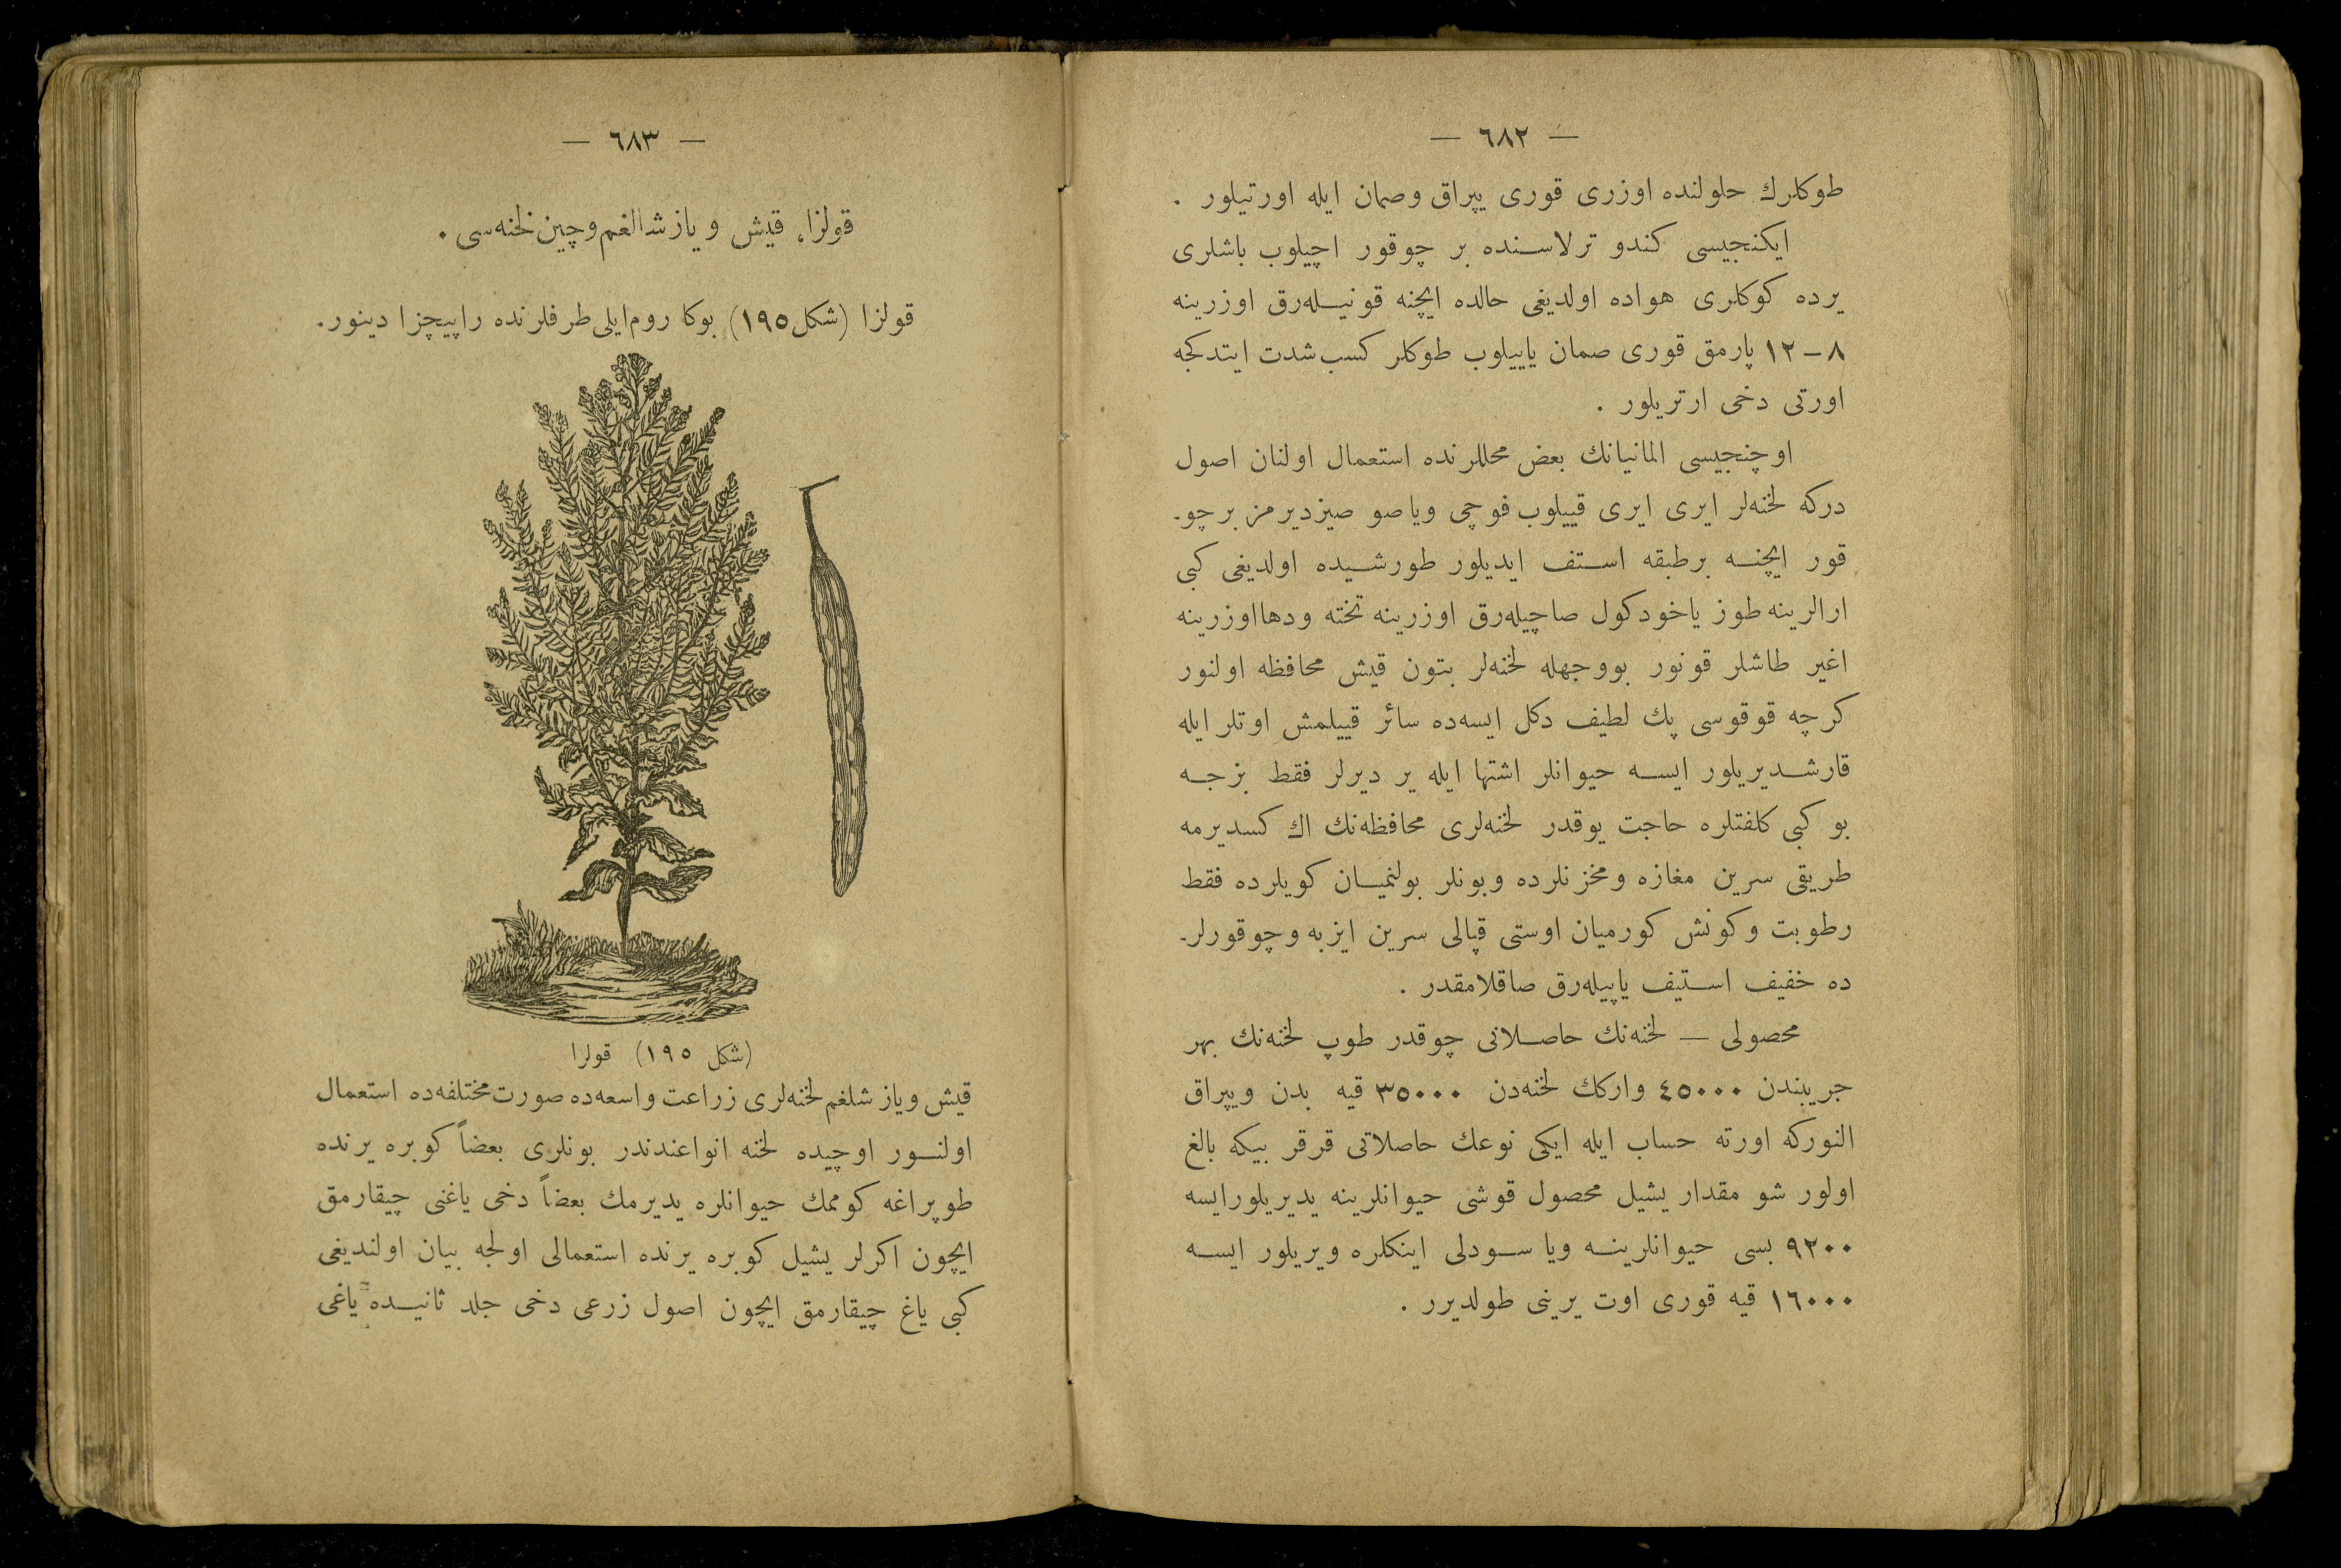 — ٦٨٢ —
طوكلرك حلولنده اوزرى قورى يپراق وصمان ايله اورتيلور .
ايكنجيسى كندو ترلاسنده بر چوقور اچيلوب باشلرى
يرده كوكلرى هواده اولديغى حالده ايچنه قونيله‌رق اوزرينه
٨ – ١٢ پارمق قورى صمان ياييلوب طوكلر كسب شدت ايتدكجه
اورتى دخى ارتريلور .
اوچنجيسى المانيانك بعض محللرنده استعمال اولنان اصول
دركه لخنه‌لر ايرى ايرى قييلوب فوچى وياصو صيزديرمز بر چو-
قور ايچنه برطبقه استف ايديلور طورشيده اولديغى كبى
ارالرينه طوز ياخود كول صاچيله‌رق اوزرينه تخته ودها اوزرينه
اغير طاشلر قونور بووجهله لخنه‌لر بتون قيش محافظه اولنور
كرچه قوقوسى پك لطيف دكل ايسه‌ده سائر قييلمش اوتلر ايله
قارشديريلور ايسه حيوانلر اشتها ايله ير ديرلر فقط بزجه
بو كبى كلفتلره حاجت يوقدر لخنه‌لرى محافظه‌نك اك كسديرمه
طريقى سرين مغازه ومخزنلرده وبونلر بولنميان كويلرده فقط
رطوبت وكونش كورميان اوستى قپالى سرين ايزبه وچوقورلر-
ده خفيف استيف ياپيله‌رق صاقلامقدر .
محصولى — لخنه‌نك حاصلاتى چوقدر طوپ لخنه‌نك بهر
جريبندن ٤٥٠٠٠ واركك لخنه‌دن ٣٥٠٠٠ قيه بدن ويپراق
النوركه اورته حساب ايله ايكى نوعك حاصلاتى قرقر بيكه بالغ
اولور شو مقدار يشيل محصول قوشى حيوانلرينه يديريلورايسه
٩٢٠٠ بسى حيوانلرينه ويا سودلى اينكلره ويريلور ايسه
١٦٠٠٠ قيه قورى اوت يرينى طولديرر .
— ٦٨٣ —
قولزا، قيش و ياز شالغم وچين لخنه‌سى .
قولزا (شكل ١٩٥) بوكا روم‌ايلى طرفلرنده راپيچزا دينور.
(شكل ١٩٥) قولزا
قيش وياز شلغم لخنه‌لرى زراعت واسعه‌ده صورت مختلفه‌ده استعمال
اولنور اوچيده لخنه انواعندندر بونلرى بعضاً كوبره يرنده
طوپراغه كوممك حيوانلره يديرمك بعضاً دخى ياغنى چيقارمق
ايچون اكرلر يشيل كوبره يرنده استعمالى اولجه بيان اولنديغى
كبى ياغ چيقارمق ايچون اصول زرعى دخى جلد ثانيده ياغى